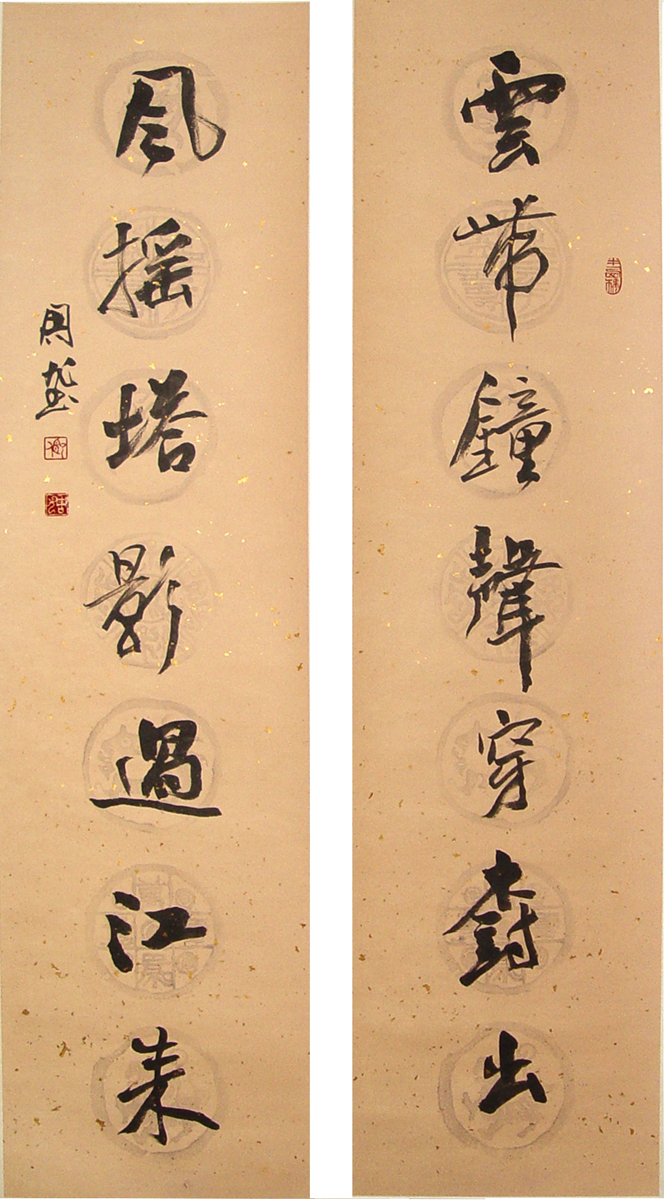 雲帶鐘聲穿樹出
風搖塔影過江來
周